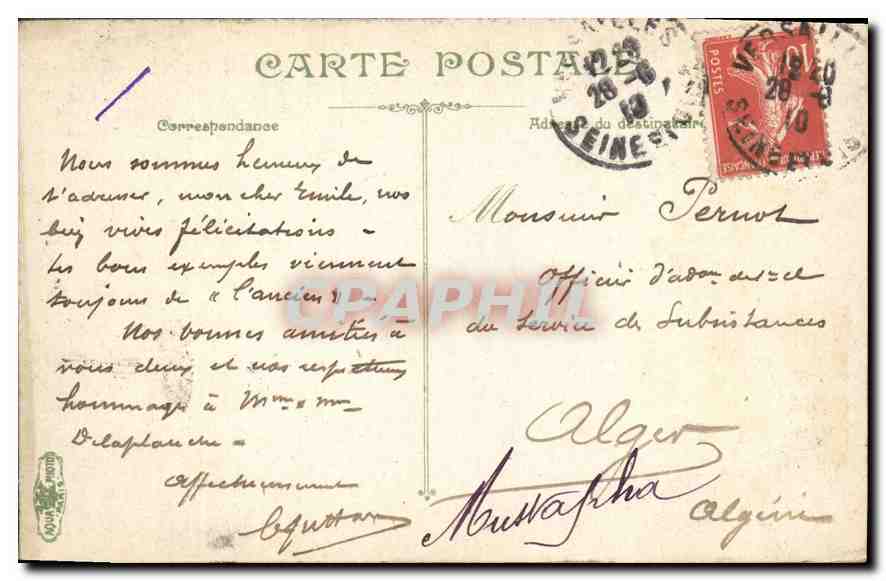 CARTE POSTALE
VERSAILLES
28 -6
10
SEINE
VERSAILLES
1920
28 -6
10
10
POSTES
Correspondance
Adresse du destinataire
Nous sommes heureux de
t'adresser, mon cher Emile, nos
bien vives félicitations -
Les bons exemples viennent
toujours de "l'ancien" -
Nos bonnes amitiés à
vous deux et nos respectueux
hommages à Mme & Mr
Delaplanche -
Affectueusement
Monsieur Pernot
Officier d'adon de 1re cl
du Service des Subsistances
Alger
Mustapha
Algérie
CPAPHIL
AQUA PHOTO
PARIS